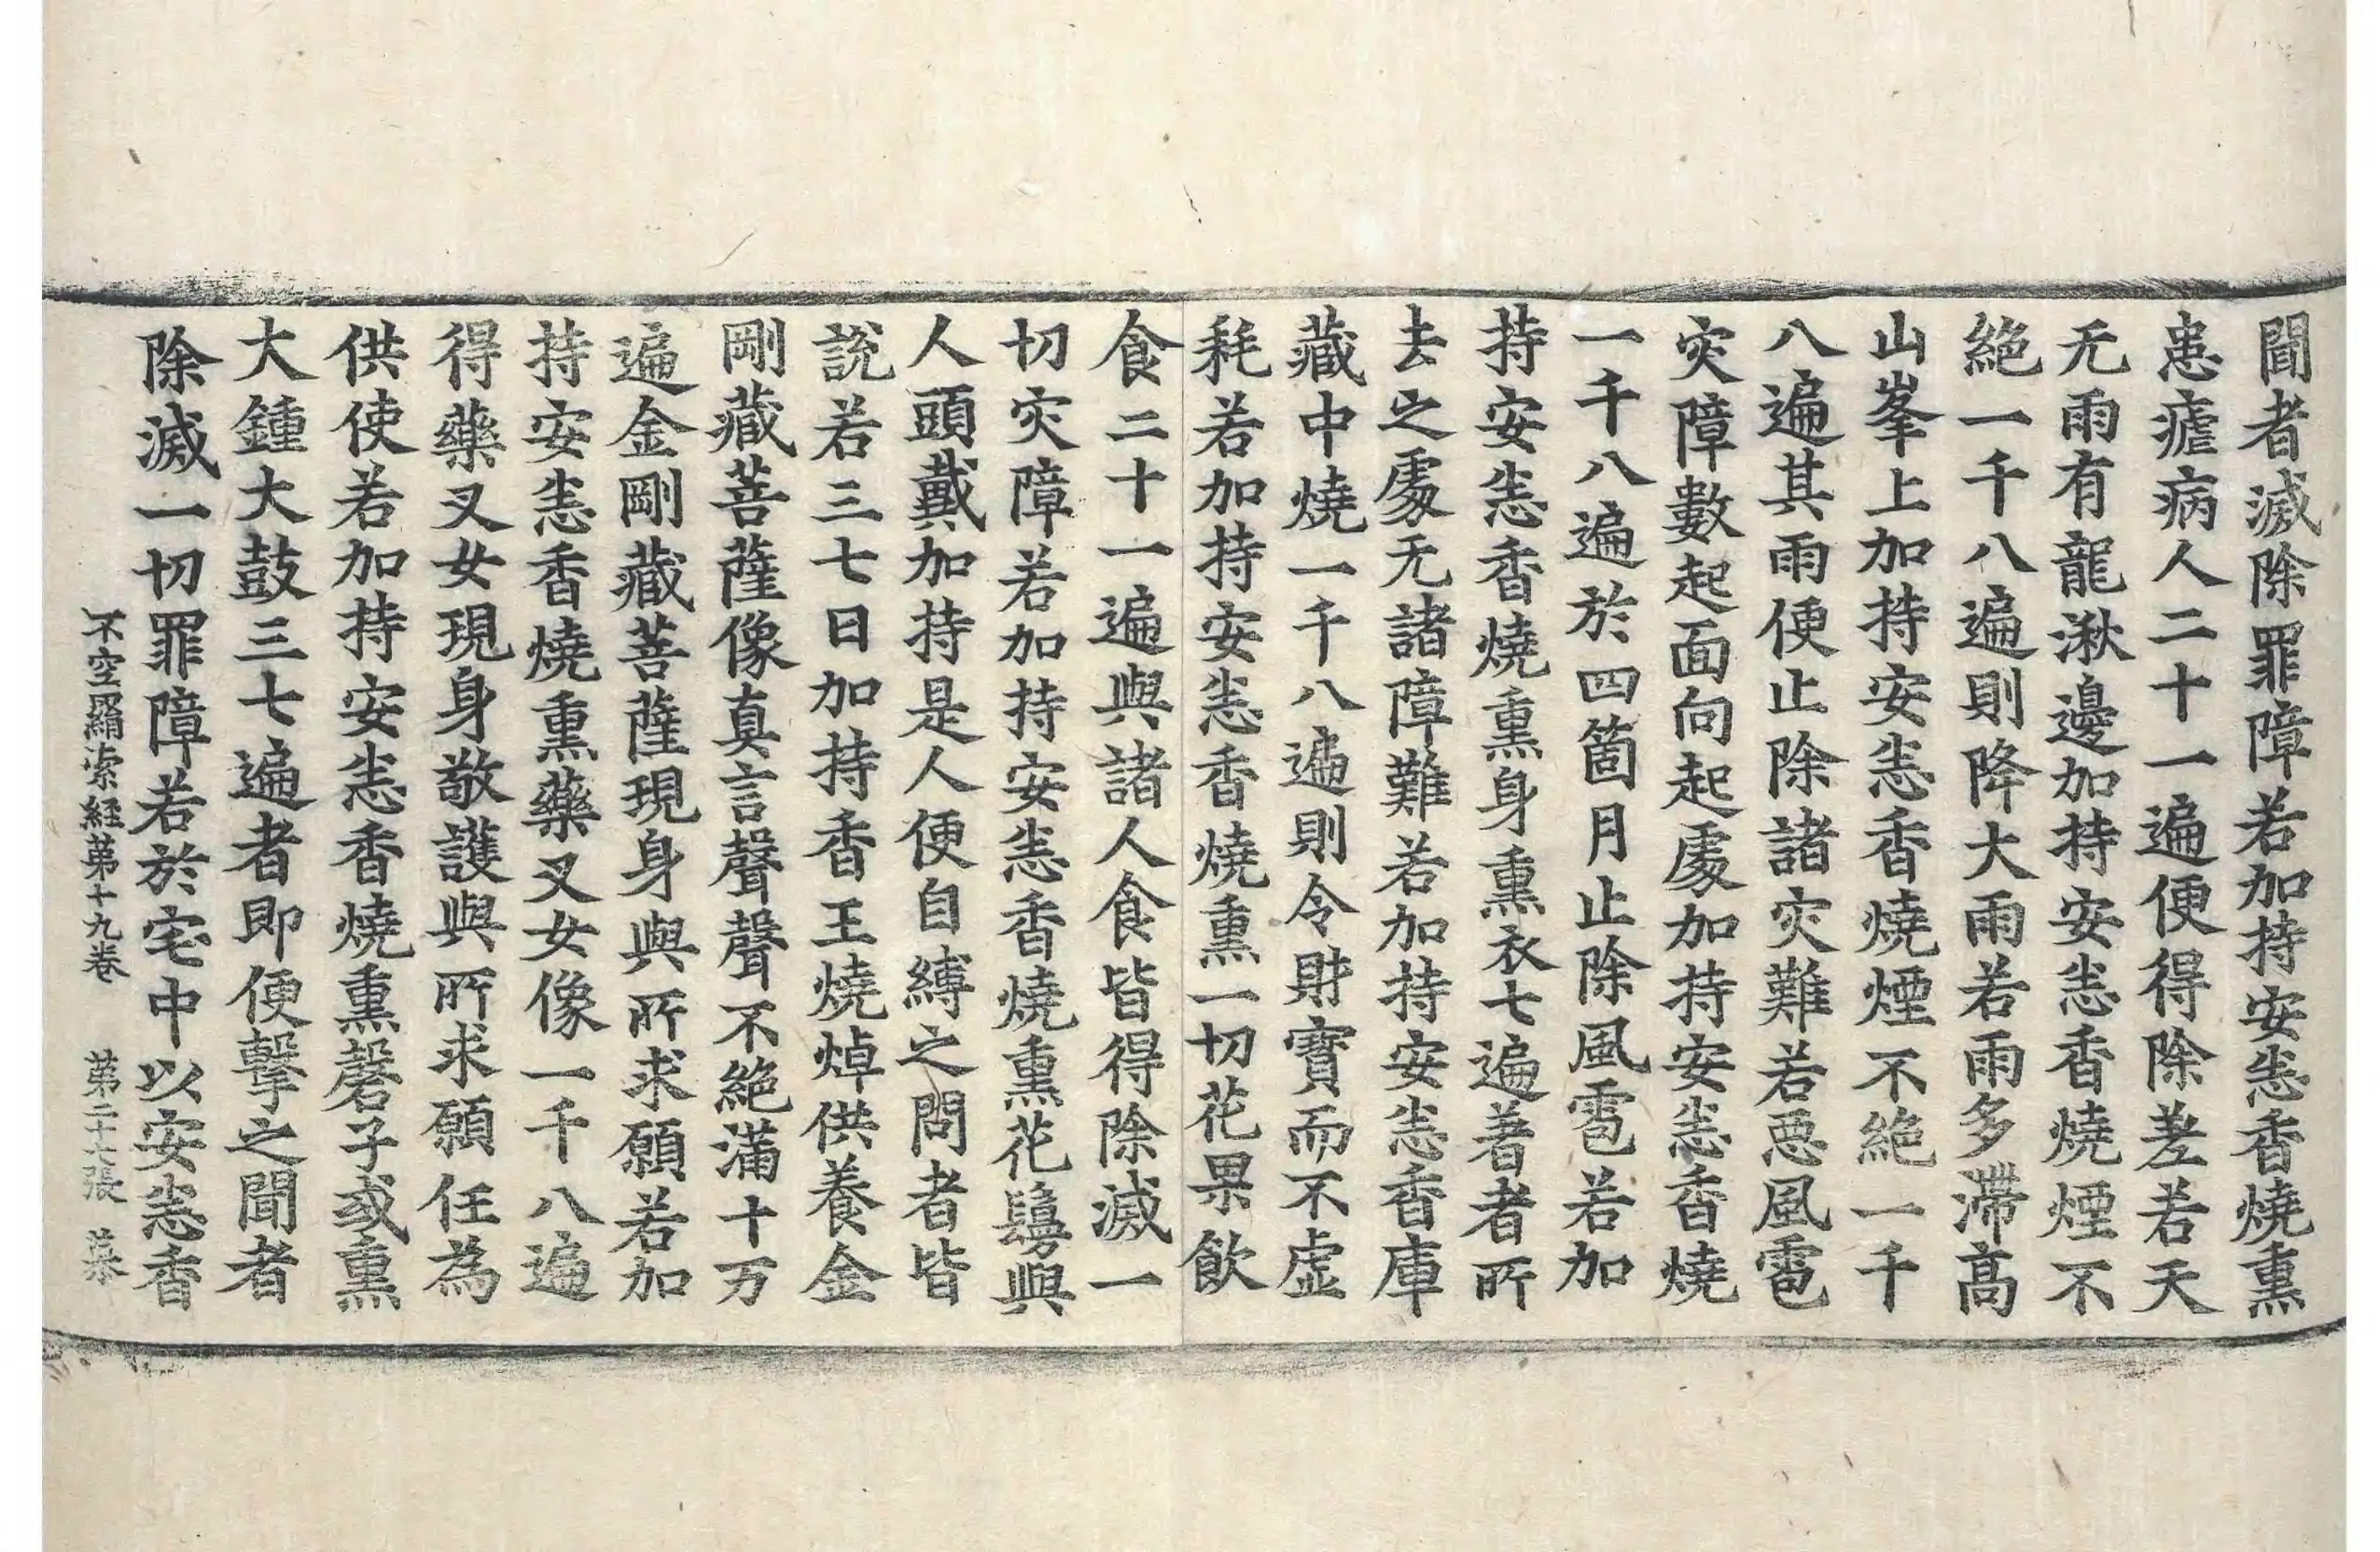 聞者滅除罪障若加持安悉香燒熏
患瘧病人二十一遍便得除差若天
无雨有龍湫邊加持安悉香燒煙不
絕一千八遍則降大雨若雨多滯高
山峯上加持安悉香燒煙不絕一千
八遍其雨便止除諸灾難若惡風雹
灾障數起面向起處加持安悉香燒
一千八遍於四箇月止除風雹若加
持安悉香燒熏身熏衣七遍著者所
去之處无諸障難若加持安悉香庫
藏中燒一千八遍則令財寶而不虛
耗若加持安悉香燒熏一切花果飲
食二十一遍與諸人食皆得除滅一
切灾障若加持安悉香燒熏花鬘與
人頭戴加持是人便自縛之問者皆
說若三七日加持香王燒焯供養金
剛藏菩薩像真言聲聲不絕滿十万
遍金剛藏菩薩現身與所求願若加
持安悉香燒熏藥叉女像一千八遍
得藥叉女現身敬護與所求願任為
供使若加持安悉香燒熏磬子或熏
大鍾大鼓三七遍者即便擊之聞者
除滅一切罪障若於宅中以安悉香
不空羂索経第十九卷 第二十七張 慕